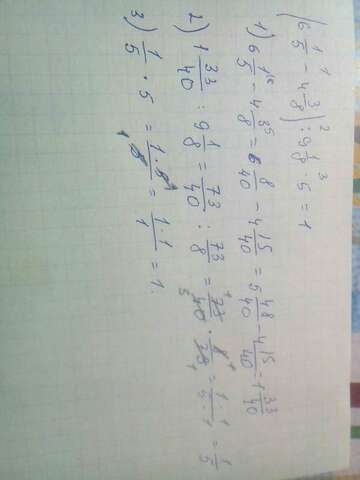 (6 1/5 - 4 3/8) : 9 1/8 · 5 = 1
1) 6 1/5 - 4 3/8 = 6 8/40 - 4 15/40 = 5 48/40 - 4 15/40 = 1 33/40
2) 1 33/40 : 9 1/8 = 73/40 : 73/8 = 73/40 · 8/73 = 1 · 1/5 · 1 = 1/5
3) 1/5 · 5 = 1 · 5/5 = 1 · 1/1 = 1.